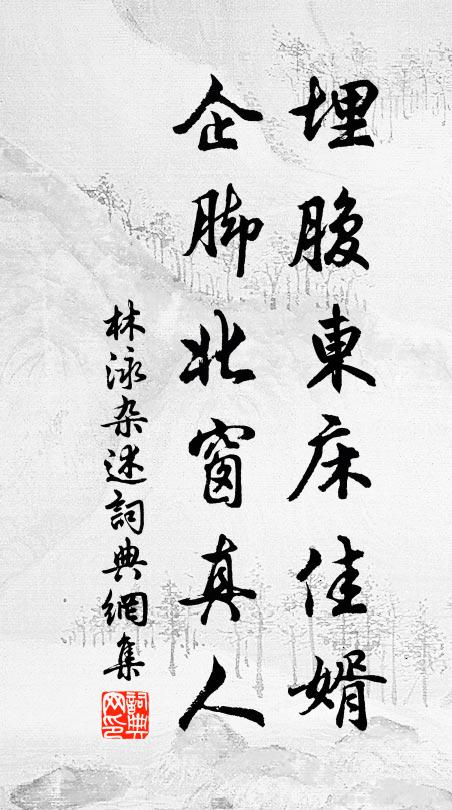 埋腹東床佳婿
企脚北窗真人
林泳杂述詞典網集
詞典
网印